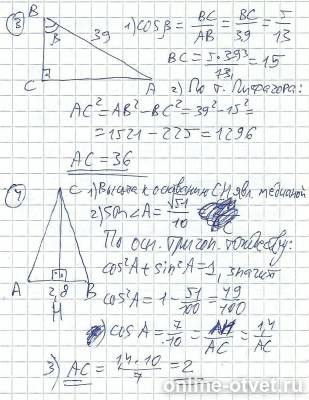 ③
B
β
39
C
A
1) cosβ = BC/AB = BC/39 = 5/13
BC = 5·39³/13₁ = 15
2) По т. Пифагора:
AC² = AB² - BC² = 39² - 15² =
= 1521 - 225 = 1296
AC = 36
④
C
A
2,8
B
H
1) Высота к основанию CH явл. медианой
2) sin∠A = √51/10
По осн. тригон. тождеству:
cos²A + sin²A = 1, значит
cos²A = 1 - 51/100 = 49/100
cos A = 7/10 = AH/AC = 1,4/AC
3) AC = 1,4·10/7 = 2
online-otvet.ru